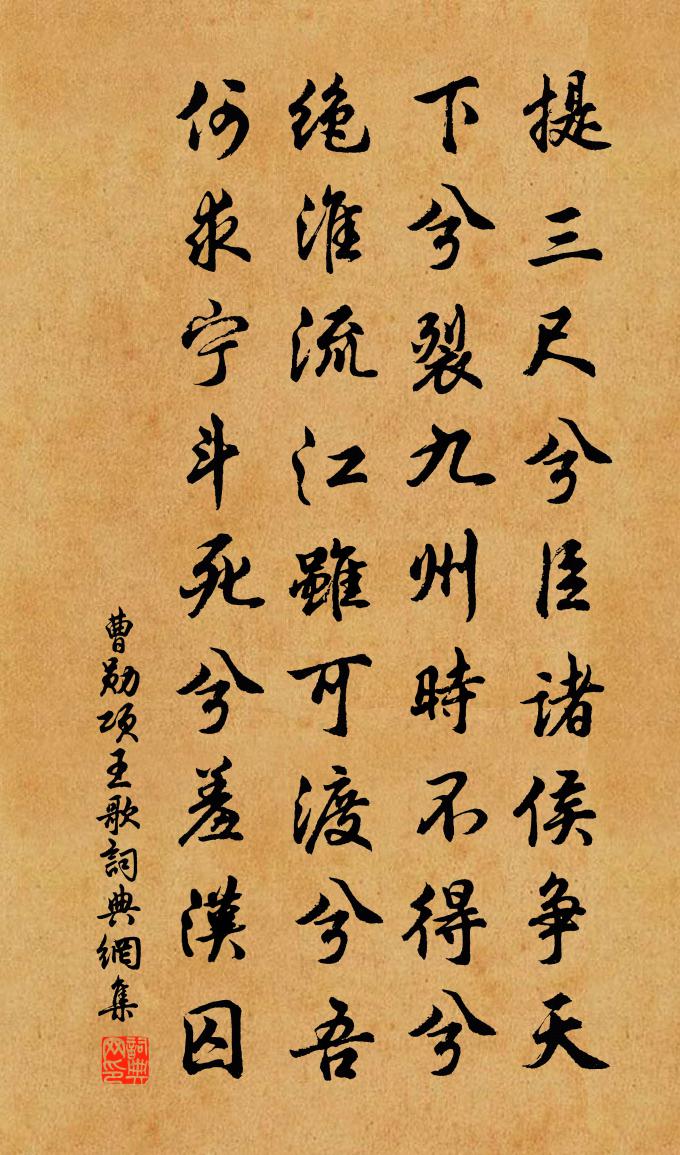 提三尺兮臣諸侯争天
下兮裂九州時不得兮
绝淮流江雖可渡兮吾
何求宁斗死兮羞漢囚
曹勋项王歌詞典網集
詞典网印